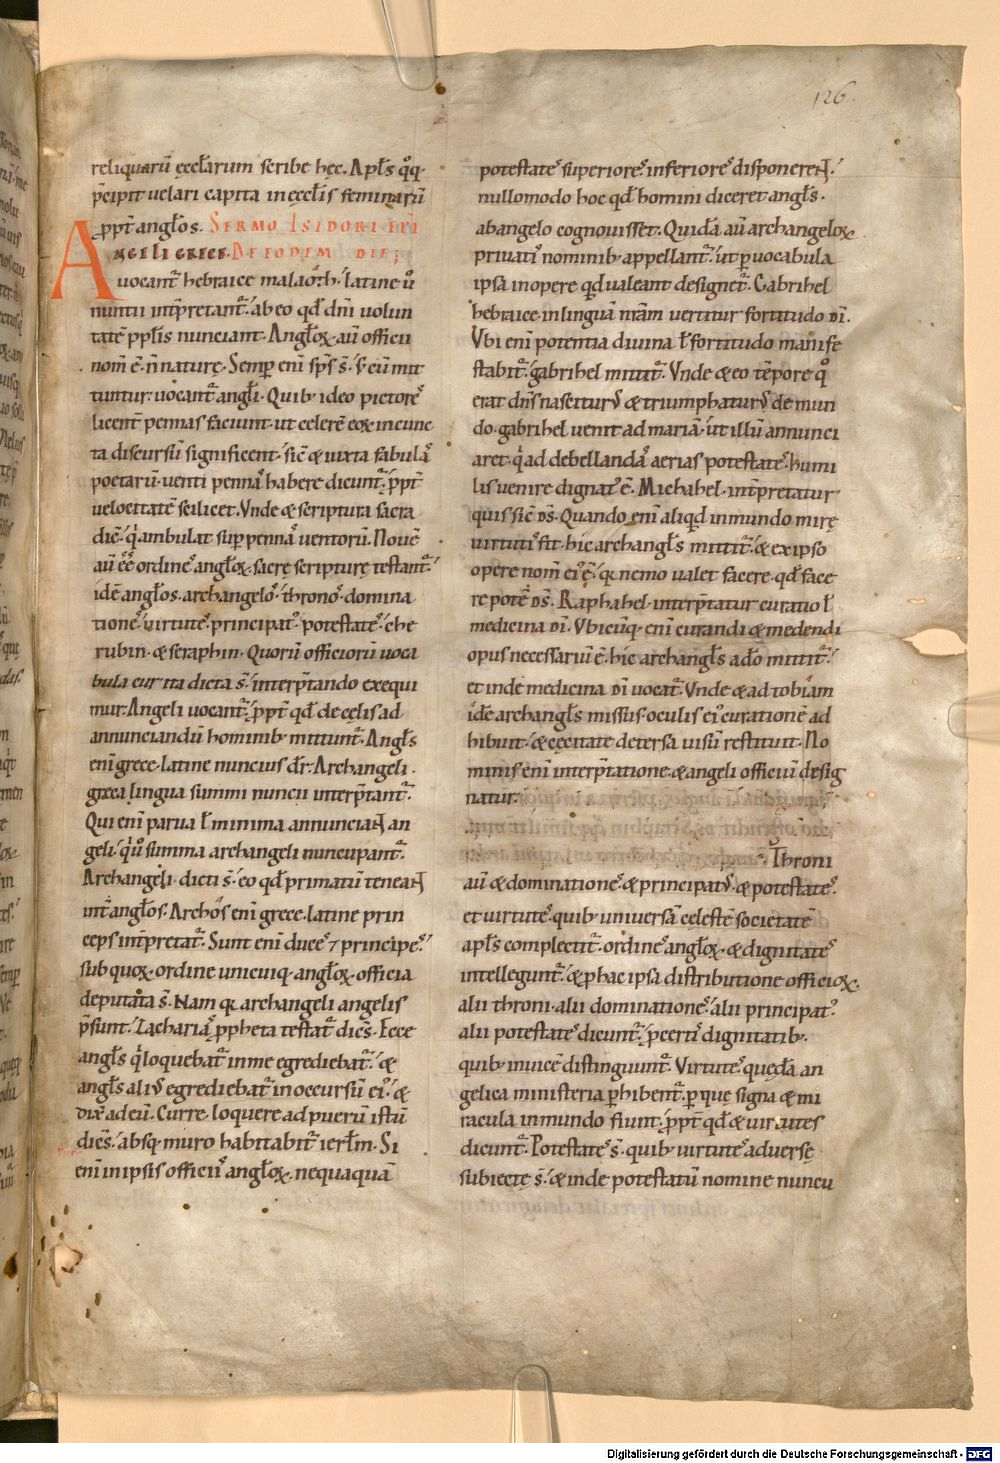 126.
reliquarū ęcctarum scribe hęc. Apłs qͦq·
p̄cipit velari capita in ęcctis feminarū
ꝓpt̄ angłos. SERMO ISIDORI EPI
ANGELI GRECE. DE EODEM DIE;
vocant̄ hebraice malaoth. latine ū
nuntii int̄pretant̄. ab eo qd̄ dn̄i volun
tatē pplis nunciant. Angłoꝝ au͂ officii
nom̄ ē. n̄ naturę. Semp eni͂ sp̄s s̄. s; cū mit
tuntur. vocant̄ angłi. Quib; ideo pictores
licent pennas faciunt. ut celerē eoꝝ in cunc
ta discursū significent. sic̄ & iuxta fabulas
poetarū. venti pennas habere dicunt̄. ꝓpt̄
velocitatē scilicet. Unde & scriptura sacra
dic̄. qͥ ambulat sup pennas ventorū. Nouē
au͂ ēē ordines angłoꝝ. sacrę scripturę testant̄.
idē angłos. archangelos. thronos. domina
tiones. virtutes. principat᾽. potestates. che
rubin. & seraphin. Quorū officiorū voca
bula cur ita dicta s̄. interp̄tando exequi
mur. Angeli vocant̄. ꝓpt̄ qd̄ de cęlis ad
annunciandū hominib; mittunt̄. Angłs
eni͂ grece. latine nuncius dr̄. Archangeli.
greca lingua summi nuncii interp̄tant̄.
Qui eni͂ parva ł minima annunciant an
geli. qͥ v͂ summa archangeli nuncupant̄.
Archangeli dicti s̄. eo qd̄ primatū teneant
int̄ angłos. Archos eni͂ grece. latine prin
ceps int̄pretat̄. Sunt eni͂ duces ⁊ principes.
sub quoꝝ ordine unicuiq; angłoꝝ officia
deputata s̄. Nam qͣ archangeli angelis
p̄sunt. Zacharias ꝓpheta testat̄ dicēs. Ecce
angłs qͥ loquebat̄ in me egrediebat̄. &
angłs alius egrediebat̄ in occursū ei᾽. &
dix̄ ad eū. Curre. loquere ad puerū istū
dicēs. absq; muro habitabit̄ ierłm. Si
eni͂ in ipsis officiis angłoꝝ. nequaquā
potestates superiores inferiores disponerent.
nullomodo hoc qd̄ homini diceret angłs.
ab angelo cognovisset. Quidā au͂ archangeloꝝ
privatis nominib; appellant̄. ut p vocabula
ipsa in opere qd̄ valeant designet̄. Gabrihel
hebraice in linguā nr̄am vertitur fortitudo DI̅.
Ubi eni͂ potentia divina ł fortitudo manife
stabit̄. gabrihel mittit̄. Unde & eo tēpore qͦ
erat dn̄s nasciturus & triumphaturus de mun
do. gabrihel venit ad mariā. ut illū annunci
aret. qͥ ad debellandas aerias potestates. humi
lis venire dignat᾽ ē. Michahel. int̄pretatur
quis sic̄ DS̅. Quando eni͂ aliqͥd in mundo mirę
virtutis fit. hic archangłs mittit̄. & ex ipso
opere nom̄ ei᾽ ē. qͣ nemo valet facere. qd̄ face
re potē DS̅. Raphahel interp̄tatur curatio ł
medicina DI̅. Ubicūq; eni͂ curandi & medendi
opus necessariū ē. hic archangłs a do͂ mittit̄.
et inde medicina DI̅ vocat̄. Unde & ad tobiam
idē archangłs missus. oculis ei᾽ curationē ad
hibuit. & cęcitate detersa visū restituit. No
minis eni͂ interp̄tatione. & angeli officiū desig
natur.
Throni
au͂ & dominationes & principatus. & potestates.
et virtutes. quib; universā cęlestē societatē
apłs complectit̄. ordines angłoꝝ. & dignitates
intellegunt̄. & ꝓ hac ipsa distributione officioꝝ.
alii throni. alii dominationes. alii principat᾽.
alii potestates dicunt̄. ꝓ certis dignitatib;
quib; invicē distinguunt̄. Virtutes. quędā an
gelica ministeria phibent̄. p quę signa & mi
racula in mundo fiunt. ꝓpt̄ qd̄ & virtutes
dicunt̄. Potestates s̄. quib; virtutes adversę
subiectę s̄. & inde potestatū nomine nuncu
Digitalisierung gefördert durch die Deutsche Forschungsgemeinschaft - DFG